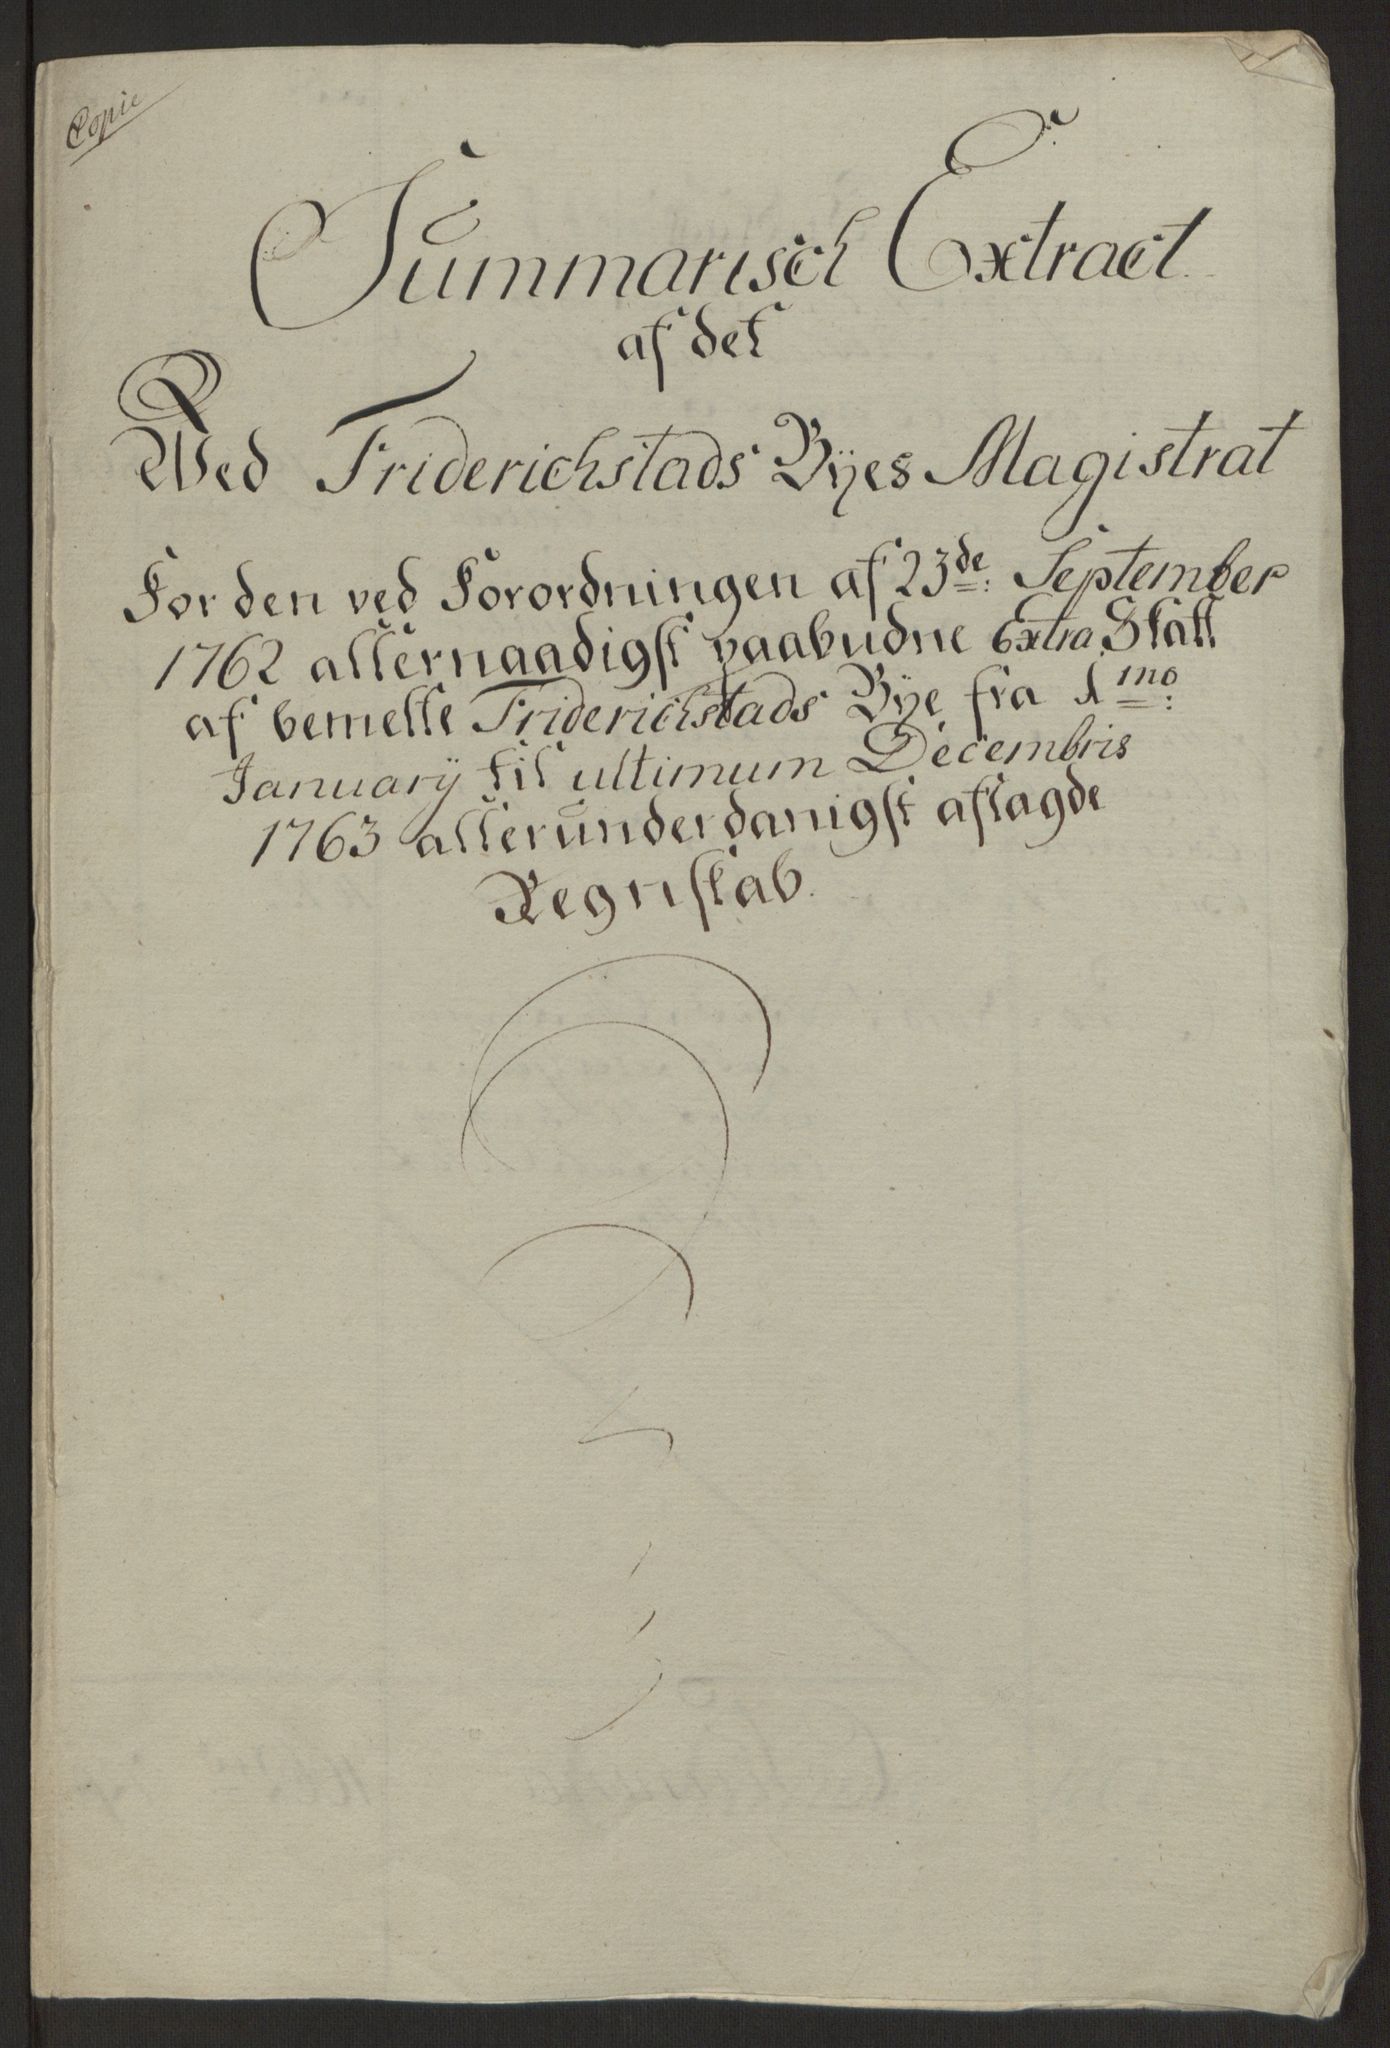 Copie
Summarisch Extract
af det
Wed Friderichstads Byes Magistrat
For den ved Forordningen af 23de: September
1762 allernaadigst paabudne Extra Skatt
af bemelte Friderichstads Bye fra 1mo:
Januarij til ultimum Decembris
1763 allerunderdanigst aflagde
Regnskab.